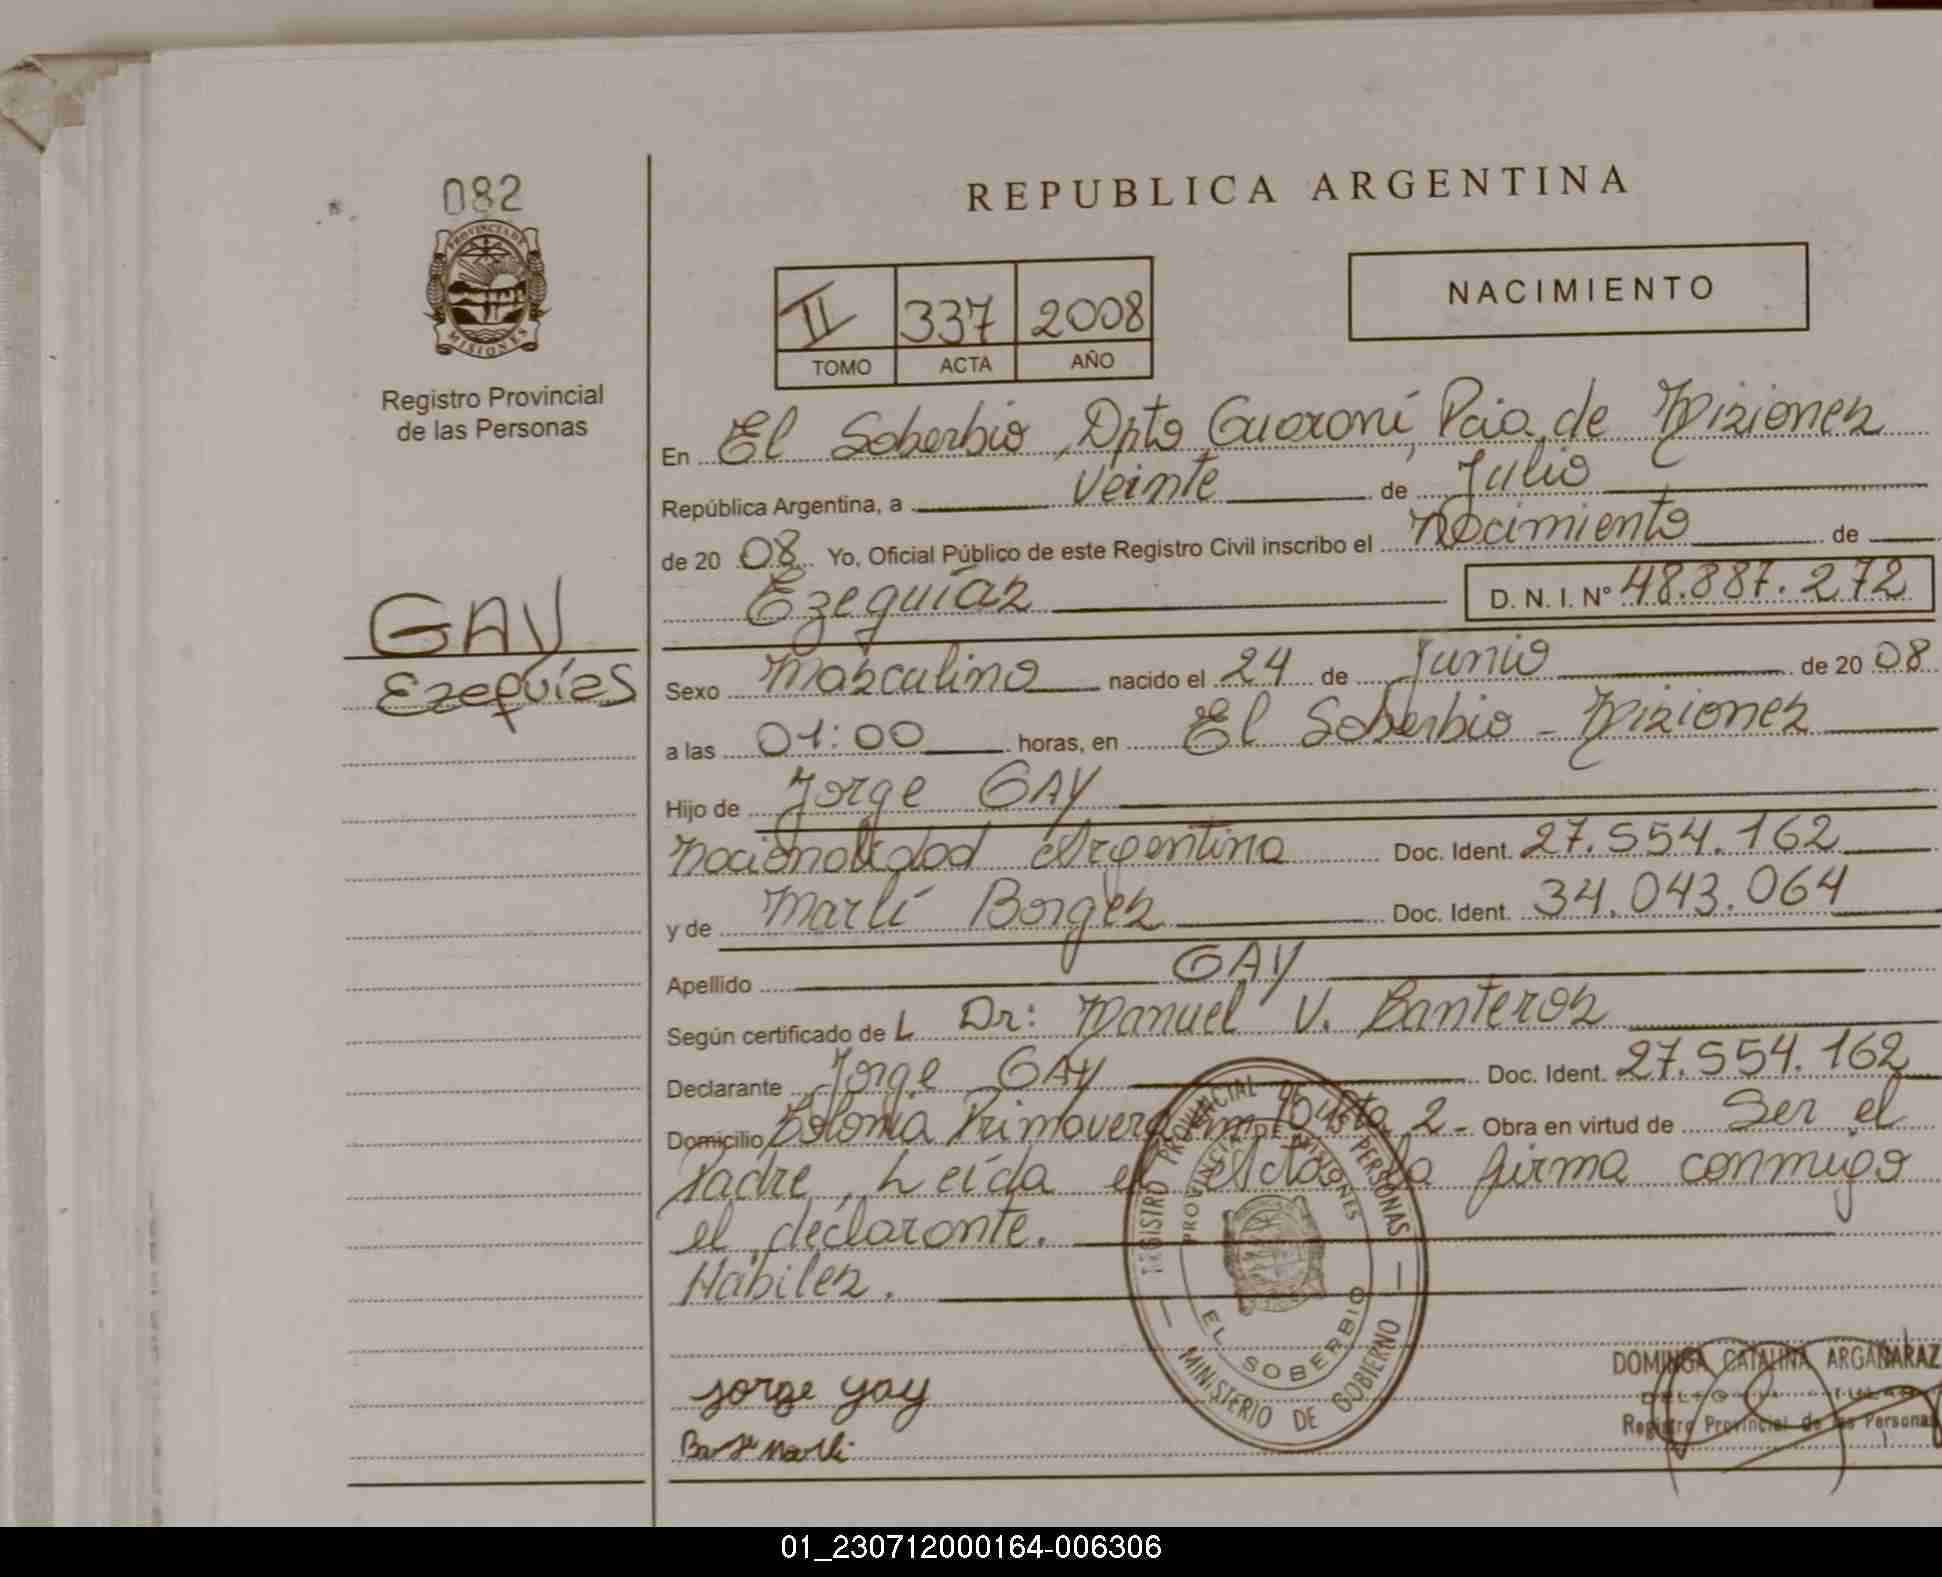 082
PROVINCIA DE
MISIONES
Registro Provincial
de las Personas
GAY
Ezequías
REPUBLICA ARGENTINA
NACIMIENTO
II 337 2008
TOMO ACTA AÑO
En El Soberbio, Dpto Guaraní, Pcia de Misiones
República Argentina, a Veinte de Julio
de 20 08 Yo, Oficial Público de este Registro Civil inscribo el Nacimiento de
Ezequías D. N. I. N° 48.887.272
Sexo Masculino nacido el 24 de Junio de 20 08
a las 01:00 horas, en El Soberbio - Misiones
Hijo de Jorge GAY
Nacionalidad Argentina Doc. Ident. 27.554.162
y de Marlí Borges Doc. Ident. 34.043.064
Apellido GAY
Según certificado de L Dr: Manuel V. Banteros
Declarante Jorge GAY Doc. Ident. 27.554.162
Domicilio Colonia Primavera 2- Obra en virtud de Ser el
Padre, Leída el Acta la firma conmigo
el declarante.
Hábiles.
REGISTRO PROVINCIAL DE LAS PERSONAS
PROVINCIA DE MISIONES
EL SOBERBIO
MINISTERIO DE GOBIERNO
jorge gay
Marli
DOMINGA CATALINA ARGAÑARAZ
Registro Provincial de las Personas
01_230712000164-006306